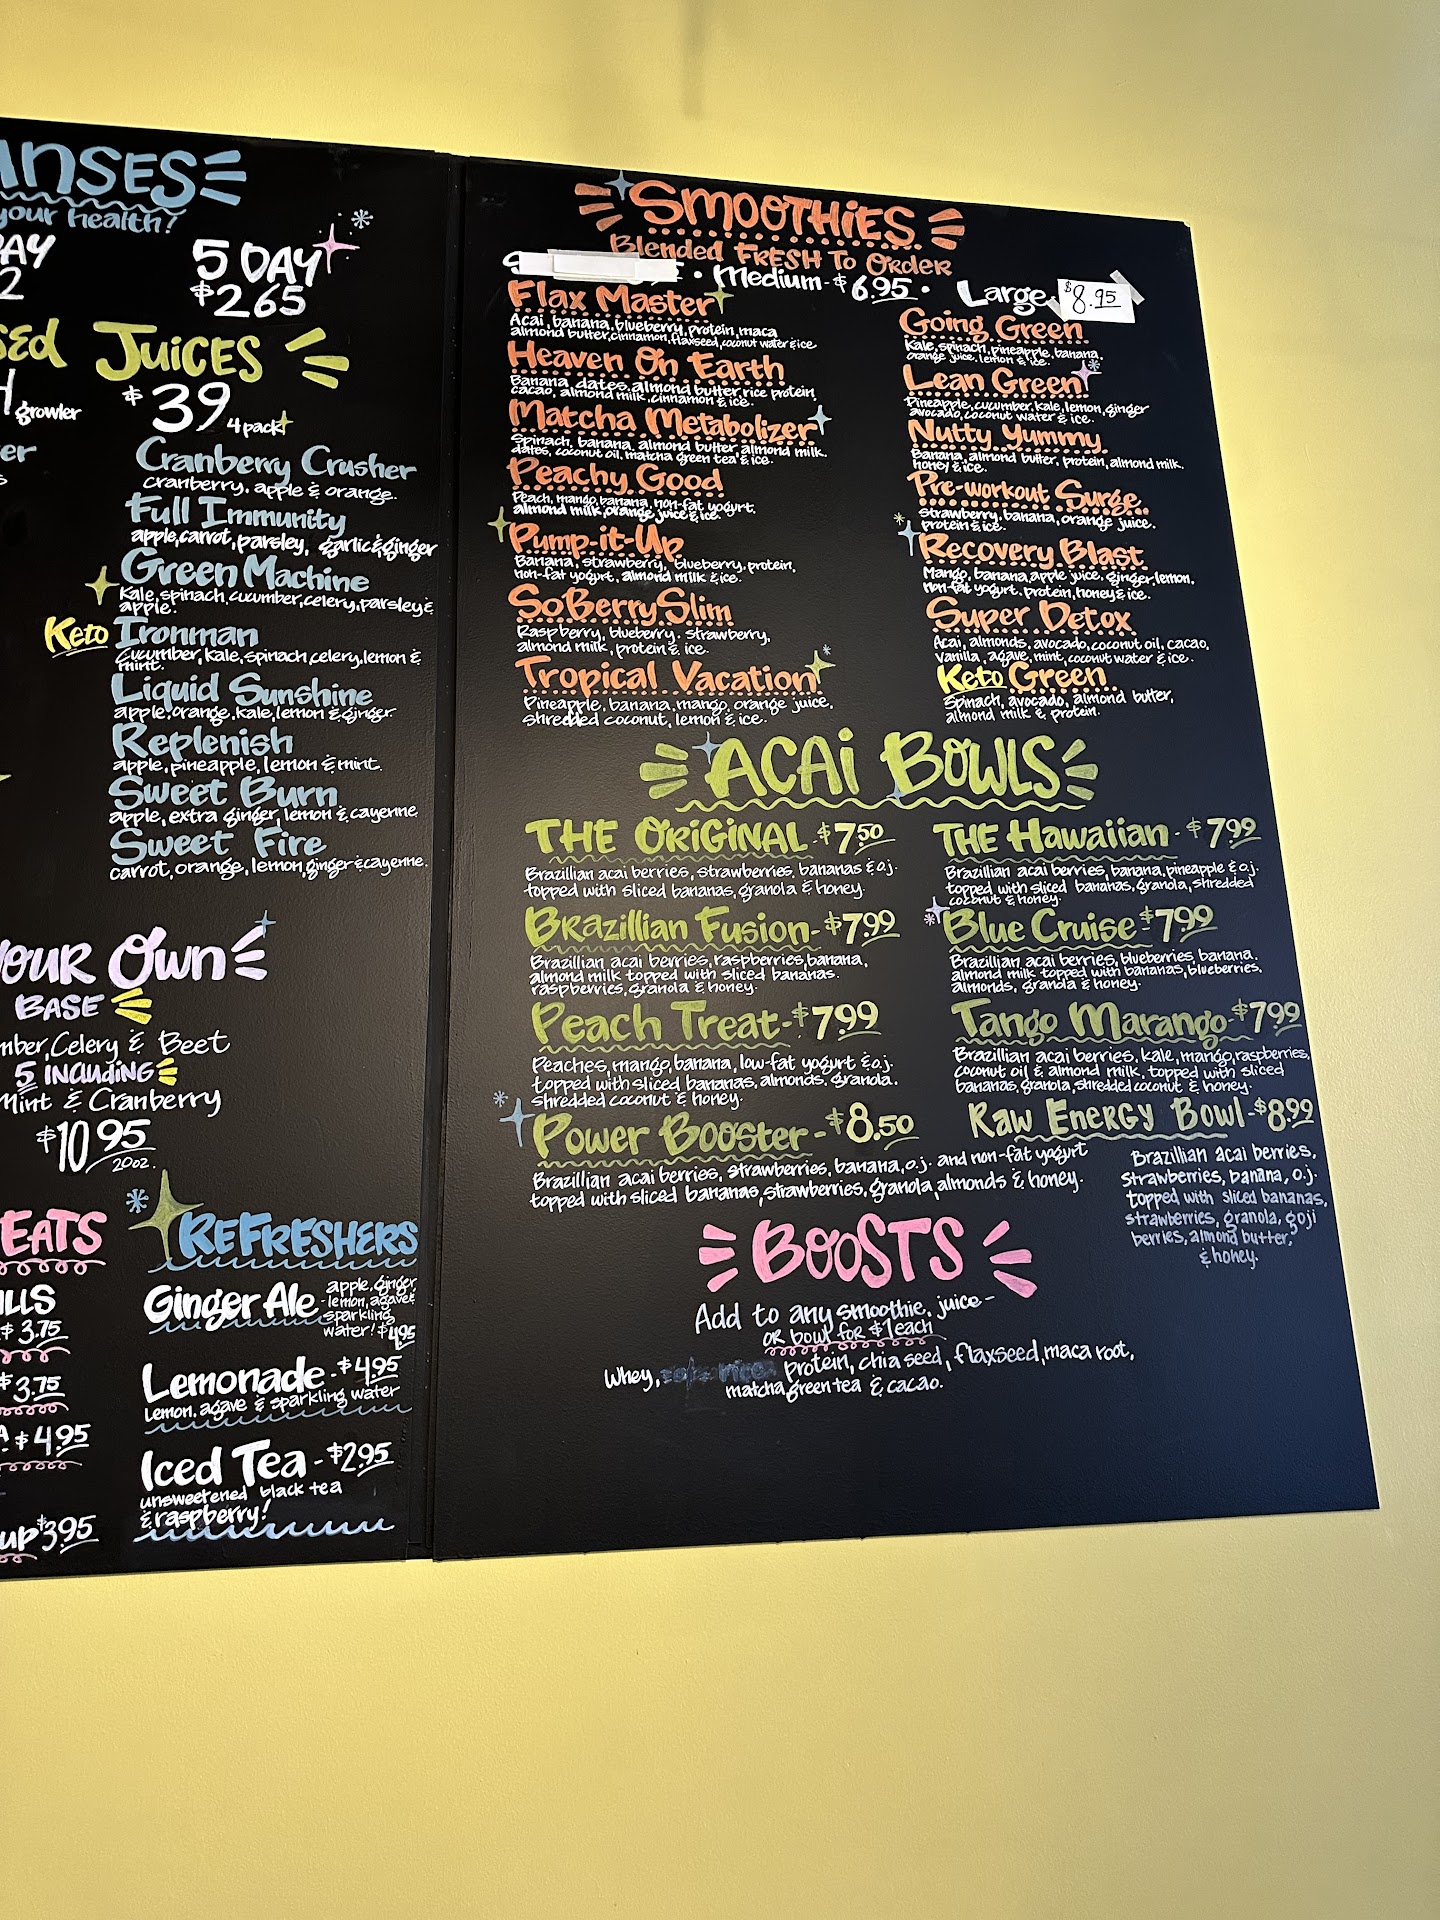 NSES
your Health!
AY
2
5 DAY
$265
sed JUiCES
growler
$39
4 pack
er
Cranberry Crusher
cranberry, apple & orange.
Full Immunity
apple, carrot, parsley, garlic & ginger
Green Machine
Kale, spinach, cucumber, celery, parsley &
apple.
Keto Ironman
cucumber, kale, spinach, celery, lemon &
mint.
Liquid Sunshine
apple, orange, kale, lemon & ginger.
Replenish
apple, pineapple, lemon & mint.
Sweet Burn
apple, extra ginger, lemon & cayenne
Sweet Fire
carrot, orange, lemon, ginger & cayenne.
OUR OWn
BASE
mber, Celery & Beet
5 INCluding
Mint & Cranberry
$10.95
20oz.
EATS
LLS
$3.75
$3.75
A $4.95
up $3.95
REFRESHERS
Ginger Ale
apple, ginger
-lemon, agave &
sparkling
water! $4.95
Lemonade - $4.95
Lemon, agave & sparkling water
Iced Tea - $2.95
unsweetened black tea
& raspberry!
SMOOTHiES
Blended FRESH To ORDER
• Medium - $6.95 • Large $8.95
Flax Master
Acai, banana, blueberry, protein, maca
almond butter, cinnamon, flaxseed, coconut water & ice
Heaven On Earth
Banana, dates, almond butter, rice protein,
cacao, almond milk, cinnamon & ice.
Matcha Metabolizer
Spinach, banana, almond butter, almond milk,
dates, coconut oil, matcha green tea & ice.
Peachy Good
Peach, mango, banana, non-fat yogurt,
almond milk, orange juice & ice.
Pump-it-Up
Banana, strawberry, blueberry, protein,
non-fat yogurt, almond milk & ice.
So Berry Slim
Raspberry, blueberry, strawberry,
almond milk, protein & ice.
Tropical Vacation
Pineapple, banana, mango, orange juice,
shredded coconut, lemon & ice.
Going Green
Kale, spinach, pineapple, banana,
orange juice, lemon & ice.
Lean Green
Pineapple, cucumber, kale, lemon, ginger
avocado, coconut water & ice.
Nutty Yummy
Banana, almond butter, protein, almond milk,
honey & ice.
Pre-workout Surge
Strawberry, banana, orange juice,
protein & ice.
Recovery Blast
Mango, banana, apple juice, ginger, lemon,
non-fat yogurt, protein, honey & ice.
Super Detox
Acai, almonds, avocado, coconut oil, cacao,
Vanilla, agave, mint, coconut water & ice.
Keto Green
Spinach, avocado, almond butter,
almond milk & protein.
ACAi BOWLS
THE ORiGiNAL - $7.50
Brazillian acai berries, strawberries, bananas & o.j.
topped with sliced bananas, granola & honey.
Brazillian Fusion - $7.99
Brazillian acai berries, raspberries, banana,
almond milk topped with sliced bananas,
raspberries, granola & honey.
Peach Treat - $7.99
Peaches, mango, banana, low-fat yogurt & o.j.
topped with sliced bananas, almonds, granola,
shredded coconut & honey.
Power Booster - $8.50
Brazillian acai berries, strawberries, banana, o.j. and non-fat yogurt
topped with sliced bananas, strawberries, granola, almonds & honey.
THE Hawaiian - $7.99
Brazillian acai berries, banana, pineapple & o.j.
topped with sliced bananas, granola, shredded
coconut & honey.
Blue Cruise - $7.99
Brazillian acai berries, blueberries, banana,
almond milk topped with bananas, blueberries,
almonds, granola & honey.
Tango Marango - $7.99
Brazillian acai berries, kale, mango, raspberries,
coconut oil & almond milk, topped with sliced
bananas, granola, shredded coconut & honey.
RAW ENERGY BOWL - $8.99
Brazillian acai berries,
strawberries, banana, o.j.
topped with sliced bananas,
strawberries, granola, goji
berries, almond butter,
& honey.
BOOSTS
Add to any smoothie, juice -
OR bowl for $1 each
Whey, protein, chia seed, flaxseed, maca root,
matcha green tea & cacao.